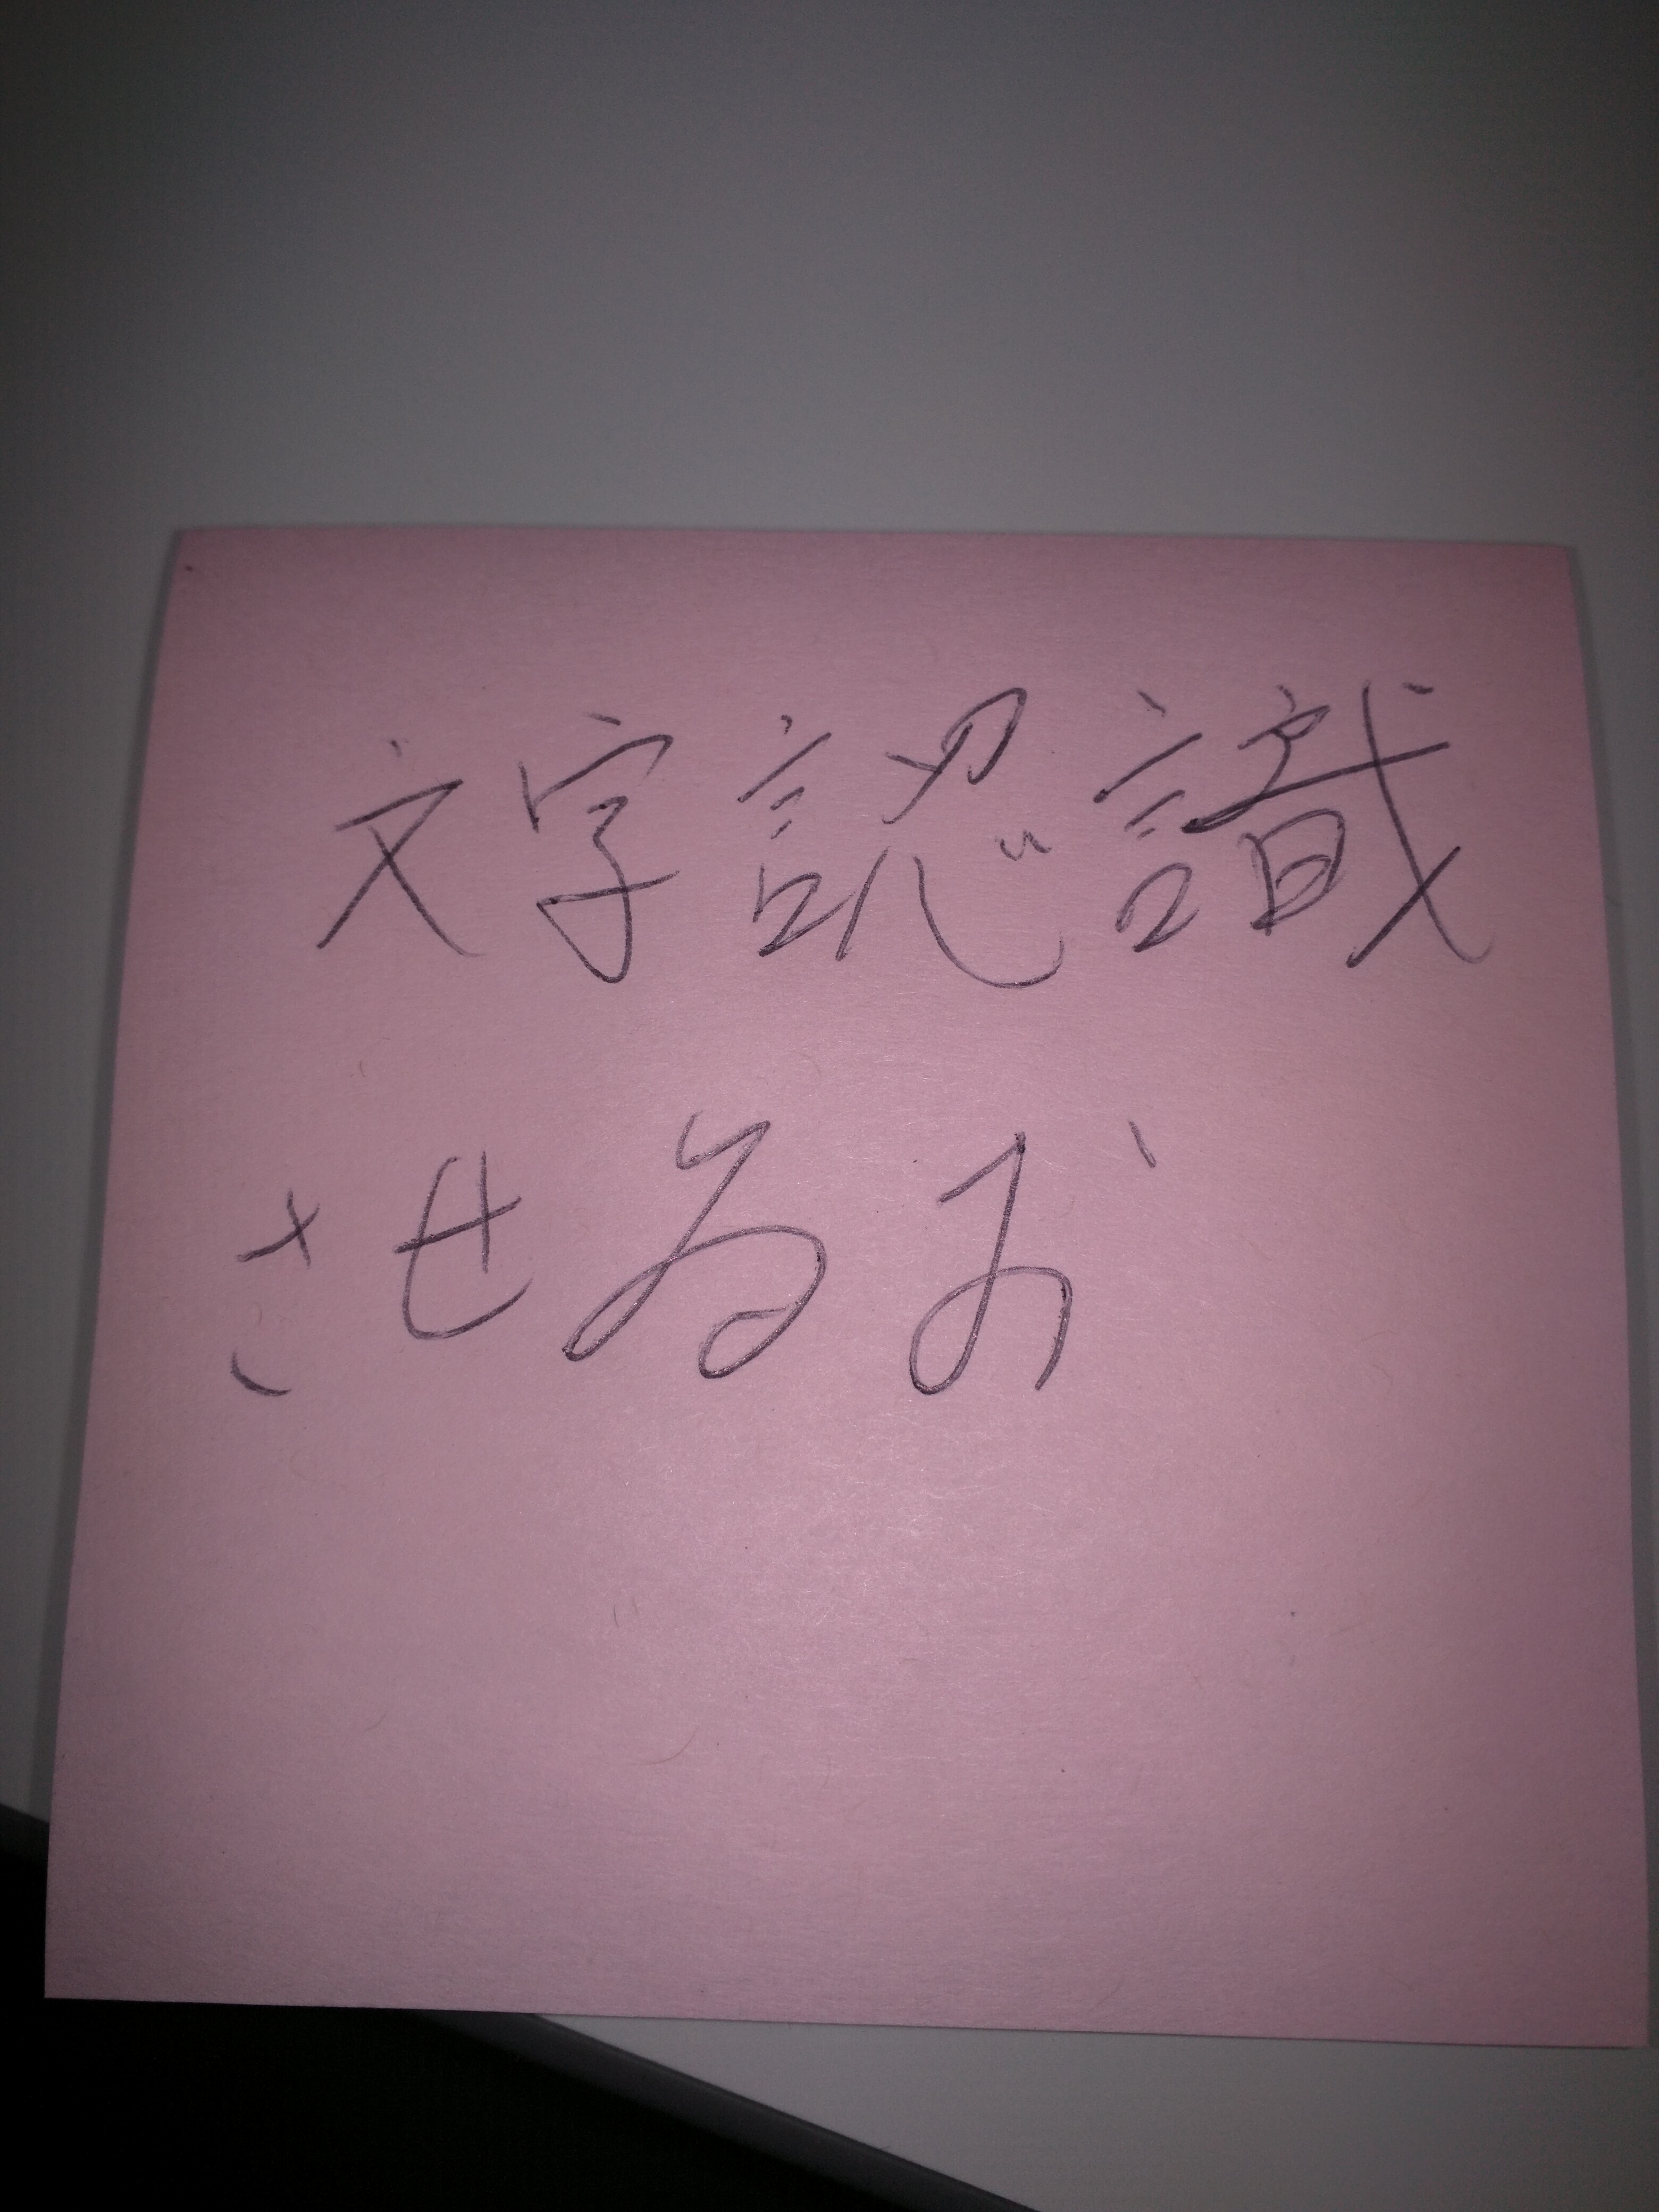 文字認識
させゐお